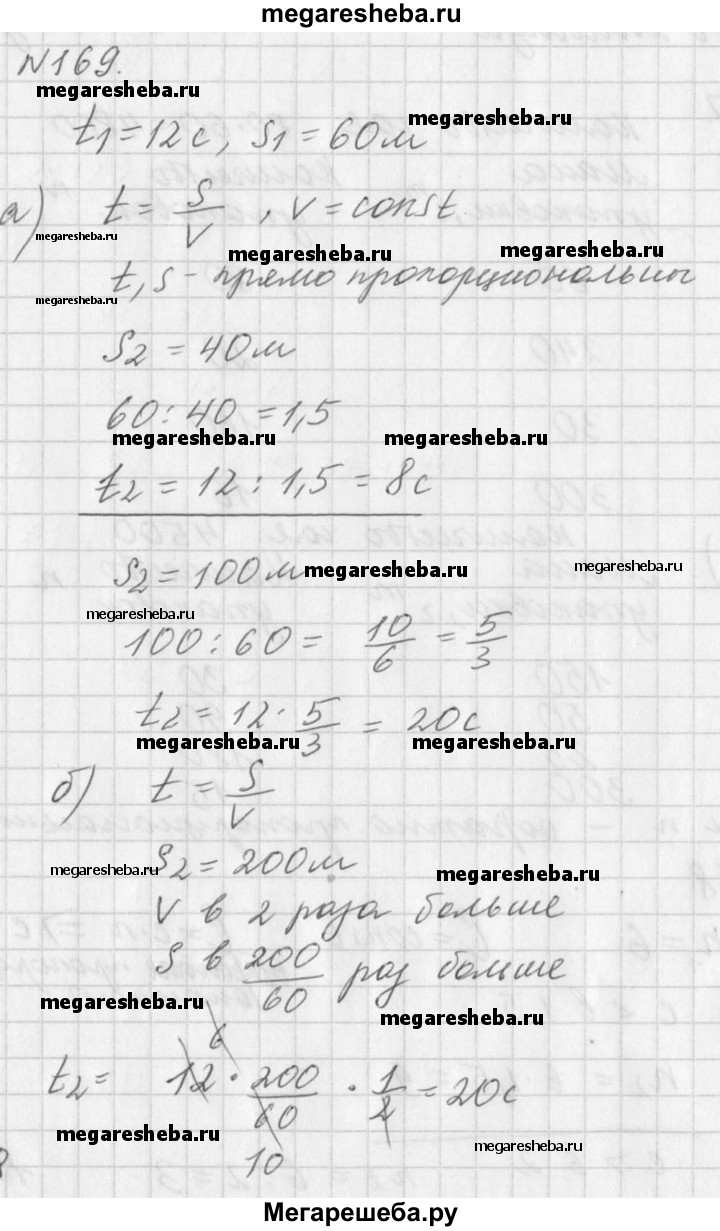 megaresheba.ru
№169.
megaresheba.ru
megaresheba.ru
t1=12с, S1=60м
а) t = S/V , V=const
megaresheba.ru
megaresheba.ru
megaresheba.ru
t,S - прямо пропорциональны
megaresheba.ru
S2 = 40м
60:40 = 1,5
megaresheba.ru
megaresheba.ru
t2 = 12 : 1,5 = 8с
S2=100м
megaresheba.ru
megaresheba.ru
megaresheba.ru
100:60 = 10/6 = 5/3
t2 = 12 · 5/3 = 20с
megaresheba.ru
megaresheba.ru
б) t = S/V
S2= 200м
megaresheba.ru
megaresheba.ru
V в 2 раза больше
S в 200/60 раз больше
megaresheba.ru
megaresheba.ru
6
t2= 12 · 200/60 · 1/2 = 20с
megaresheba.ru
megaresheba.ru
10
Мегарешеба.ру